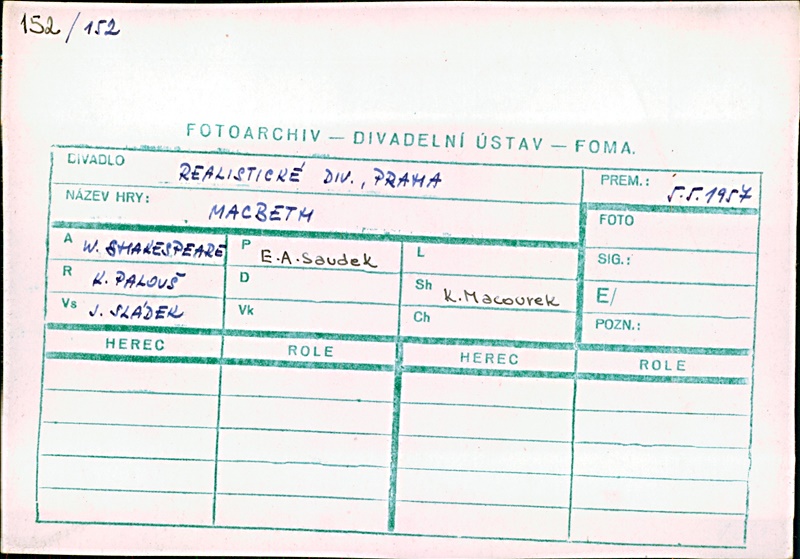 152/152
FOTOARCHIV — DIVADELNÍ ÚSTAV — FOMA.
DIVADLO REALISTICKÉ DIV., PRAHA PREM.: 5.5.1957
NÁZEV HRY: MACBETH FOTO
A W. SHAKESPEARE P E.A. Saudek L SIG.:
R K. PALOUŠ D Sh K. Macourek E/
Vs J. SLÁDEK Vk Ch POZN.:
HEREC ROLE HEREC ROLE